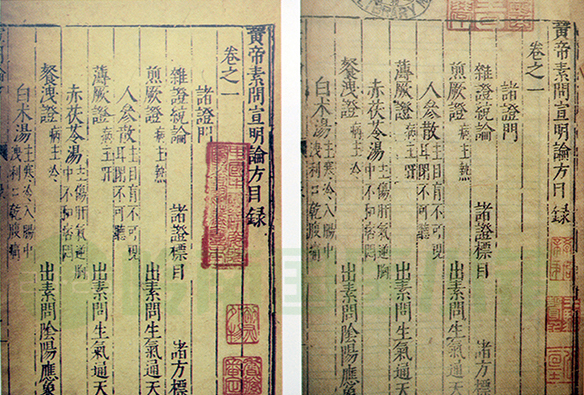 黃帝素問宣明論方目録
卷之一
諸證門
雜證統論 諸證標目 諸方標
煎厥證 病主熱 出素問生氣通天
人參散 主目盲不可視
耳閉不可聽
薄厥證 病主肝 出素問生氣通天
赤茯苓湯 主傷肝氣逆胸
中不和
餐洩證 病主冷 出素問陰陽應象
白术湯 主寒冷入腸中
洩利口乾腹痛
黃帝素問宣明論方目録
卷之一
諸證門
雜證統論 諸證標目 諸方標
煎厥證 病主熱 出素問生氣通天
人參散 主目盲不可視
耳閉不可聽
薄厥證 病主肝 出素問生氣通天
赤茯苓湯 主傷肝氣逆胸
中不和
餐洩證 病主冷 出素問陰陽應象
白术湯 主寒冷入腸中
洩利口乾腹痛